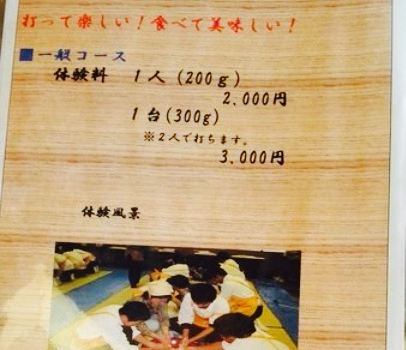 打って楽しい！食べて美味しい！
■一般コース
体験料 1人(200g)
2,000円
1台(300g)
※2人で打ちます。
3,000円
体験風景